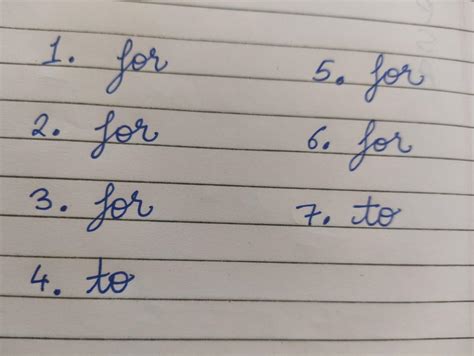 1. for
2. for
3. for
4. to
5. for
6. for
7. to